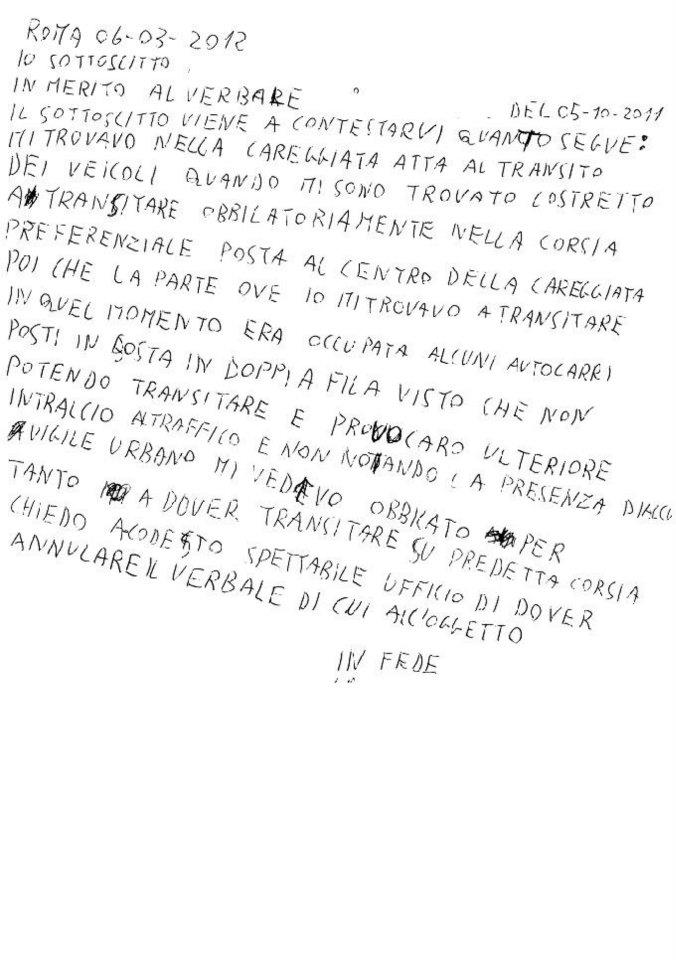 ROMA 06-03-2012
IO SOTTOSCITTO
IN MERITO AL VERBARE DEL 05-10-2011
IL SOTTOSCITTO VIENE A CONTESTARVI QUANTO SEGUE:
MI TROVAVO NELLA CAREGGIATA ATTA AL TRANSITO
DEI VEICOLI QUANDO MI SONO TROVATO COSTRETTO
A TRANSITARE OBBILATORIAMENTE NELLA CORSIA
PREFERENZIALE POSTA AL CENTRO DELLA CAREGGIATA
POI CHE LA PARTE OVE IO MI TROVAVO A TRANSITARE
IN QUEL MOMENTO ERA OCCUPATA ALCUNI AUTOCARRI
POSTI IN SOSTA IN DOPPIA FILA VISTO CHE NON
POTENDO TRANSITARE E PROVOCARO ULTERIORE
INTRALCIO AL TRAFFICO E NON NOTANDO LA PRESENZA DI ALCU
VIGILE URBANO MI VEDEVO OBBLIATO PER
TANTO A DOVER TRANSITARE SU PREDETTA CORSIA
CHIEDO A CODESTO SPETTABILE UFFICIO DI DOVER
ANNULARE IL VERBALE DI CUI ALL'OGGETTO
IN FEDE